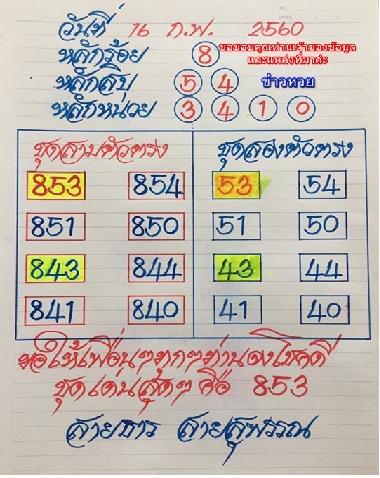 วันที่ 16 ก.พ. 2560
หลักร้อย 8
ขอขอบคุณท่านเจ้าของข้อมูล
และแหล่งที่มาค่ะ
หลักสิบ 5 4 ข่าวหวย
หลักหน่วย 3 4 1 0
ชุดสามตัวตรง ชุดสองตัวตรง
853 854 53 54
851 850 51 50
843 844 43 44
841 840 41 40
ขอให้เพื่อนๆทุกๆท่านจงโชคดี
ชุดเด่นสุดๆ คือ 853
สายธาร สายสุพรรณ